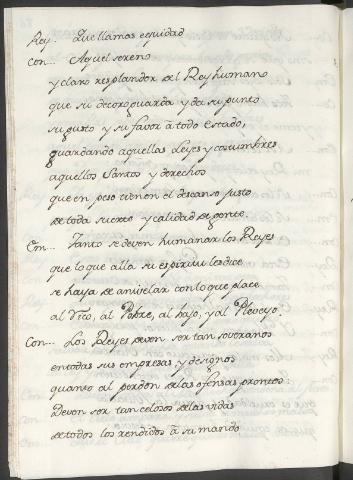 Rey.. Que llamas equidad
Con... Aquel sereno
y claro resplandor del Rey humano
que su decoro guarda y da su punto
su gusto y su favor à todo estado,
guardando aquellas Leyes y costumbres
aquellos Santos y derechos
que en peso tienen el descanso justo
de toda suerte y calidad de gente.
Em... Tanto se deven humanar los Reyes
que lo que alla su espiritu les dice
se haya de anivelar con lo que place
al Rico, al Pobre, al bajo, y al Pleveyo.
Con... Los Reyes deven ser tan soveranos
en todas sus empresas y designos
quanto al perdon de las ofensas prontos:
Deven ser tan celosos de las vidas
de todos los rendidos à su mando